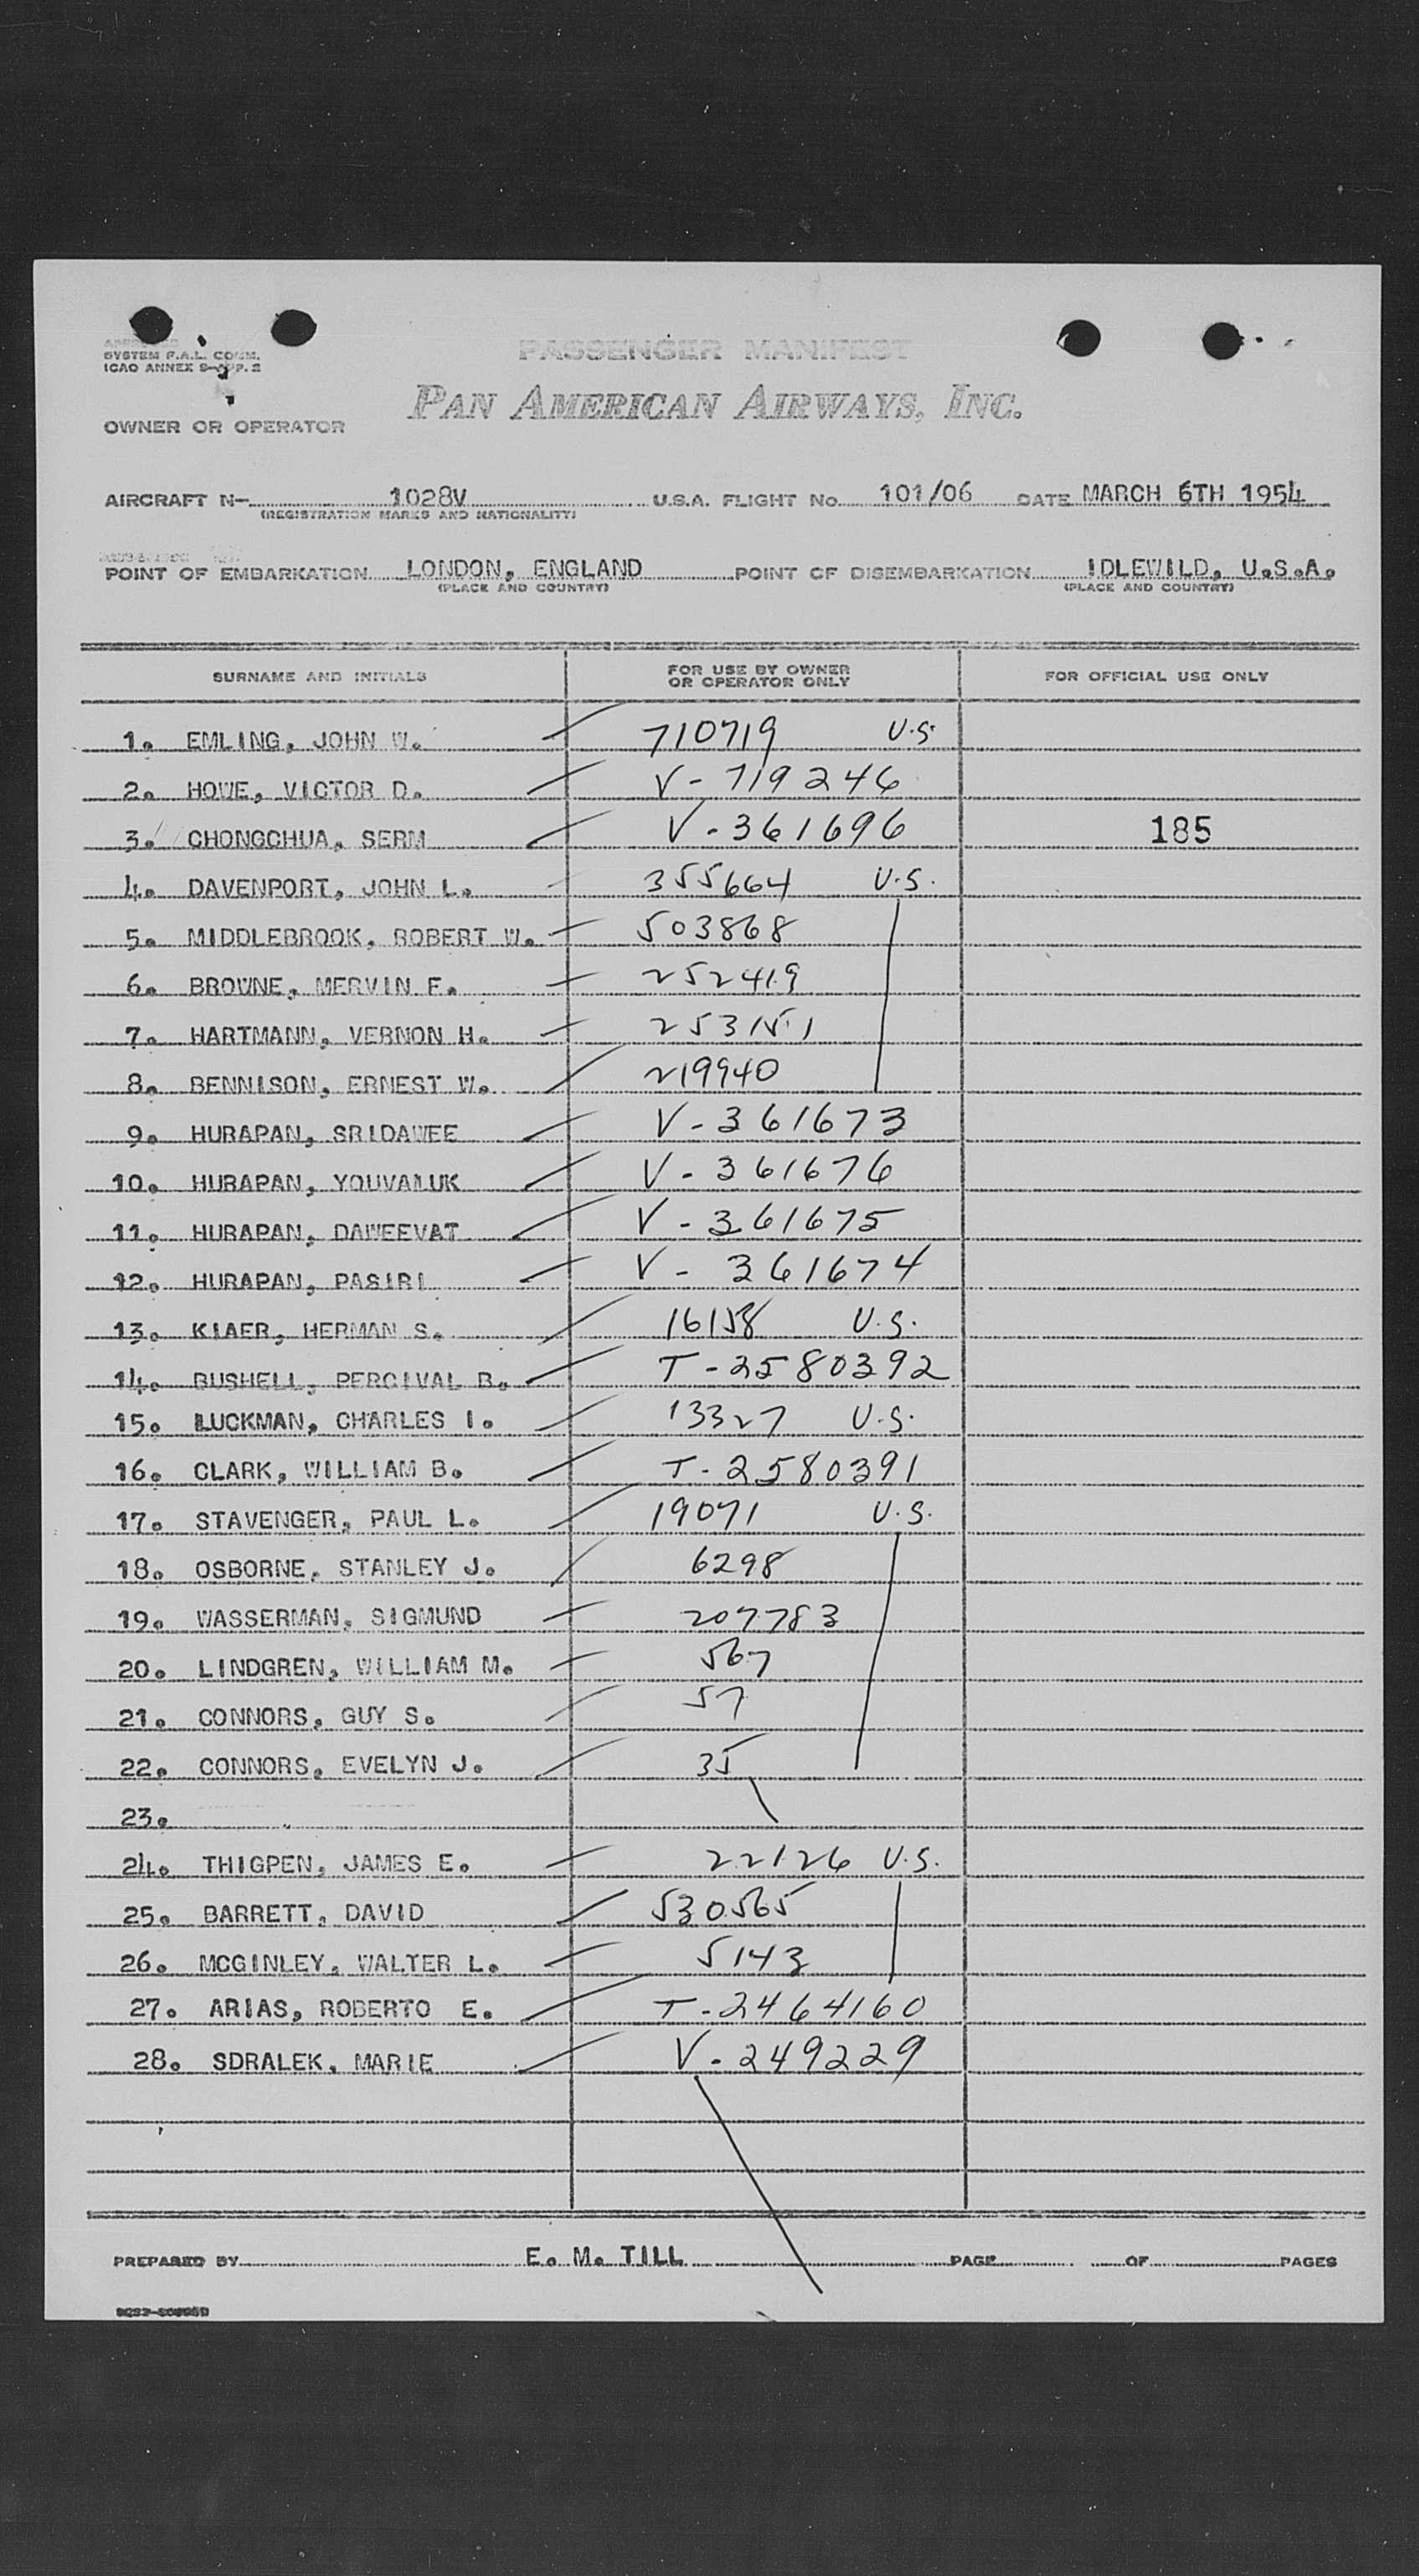 PASSENGER MANIFEST
SYSTEM F.A.L. COMM.
ICAO ANNEX 9-APP. 2
PAN AMERICAN AIRWAYS, INC.
OWNER OR OPERATOR
AIRCRAFT N- 1028V U.S.A. FLIGHT No. 101/06 DATE MARCH 6TH 1954
(REGISTRATION MARKS AND NATIONALITY)
POINT OF EMBARKATION LONDON, ENGLAND POINT OF DISEMBARKATION IDLEWILD, U.S.A.
(PLACE AND COUNTRY) (PLACE AND COUNTRY)
SURNAME AND INITIALS FOR USE BY OWNER OR OPERATOR ONLY FOR OFFICIAL USE ONLY
1. EMLING, JOHN W. 710719 U.S.
2. HOWE, VICTOR D. V-719246
3. CHONGCHUA, SERM V-361696 185
4. DAVENPORT, JOHN L. 355664 U.S.
5. MIDDLEBROOK, ROBERT W. 503868
6. BROWNE, MERVIN F. 252419
7. HARTMANN, VERNON H. 253151
8. BENNISON, ERNEST W. 219940
9. HURAPAN, SRIDAWEE V-361673
10. HURAPAN, YOUVALUK V-361676
11. HURAPAN, DAWEEVAT V-361675
12. HURAPAN, PASIRI V-361674
13. KIAER, HERMAN S. 16158 U.S.
14. BUSHELL, PERCIVAL B. T-2580392
15. LUCKMAN, CHARLES I. 13327 U.S.
16. CLARK, WILLIAM B. T-2580391
17. STAVENGER, PAUL L. 19071 U.S.
18. OSBORNE, STANLEY J. 6298
19. WASSERMAN, SIGMUND 207783
20. LINDGREN, WILLIAM M. 567
21. CONNORS, GUY S. 57
22. CONNORS, EVELYN J. 35
23.
24. THIGPEN, JAMES E. 22126 U.S.
25. BARRETT, DAVID 530565
26. MCGINLEY, WALTER L. 5143
27. ARIAS, ROBERTO E. T-2464160
28. SDRALEK, MARIE V-249229
PREPARED BY E. M. TILL PAGE OF PAGES